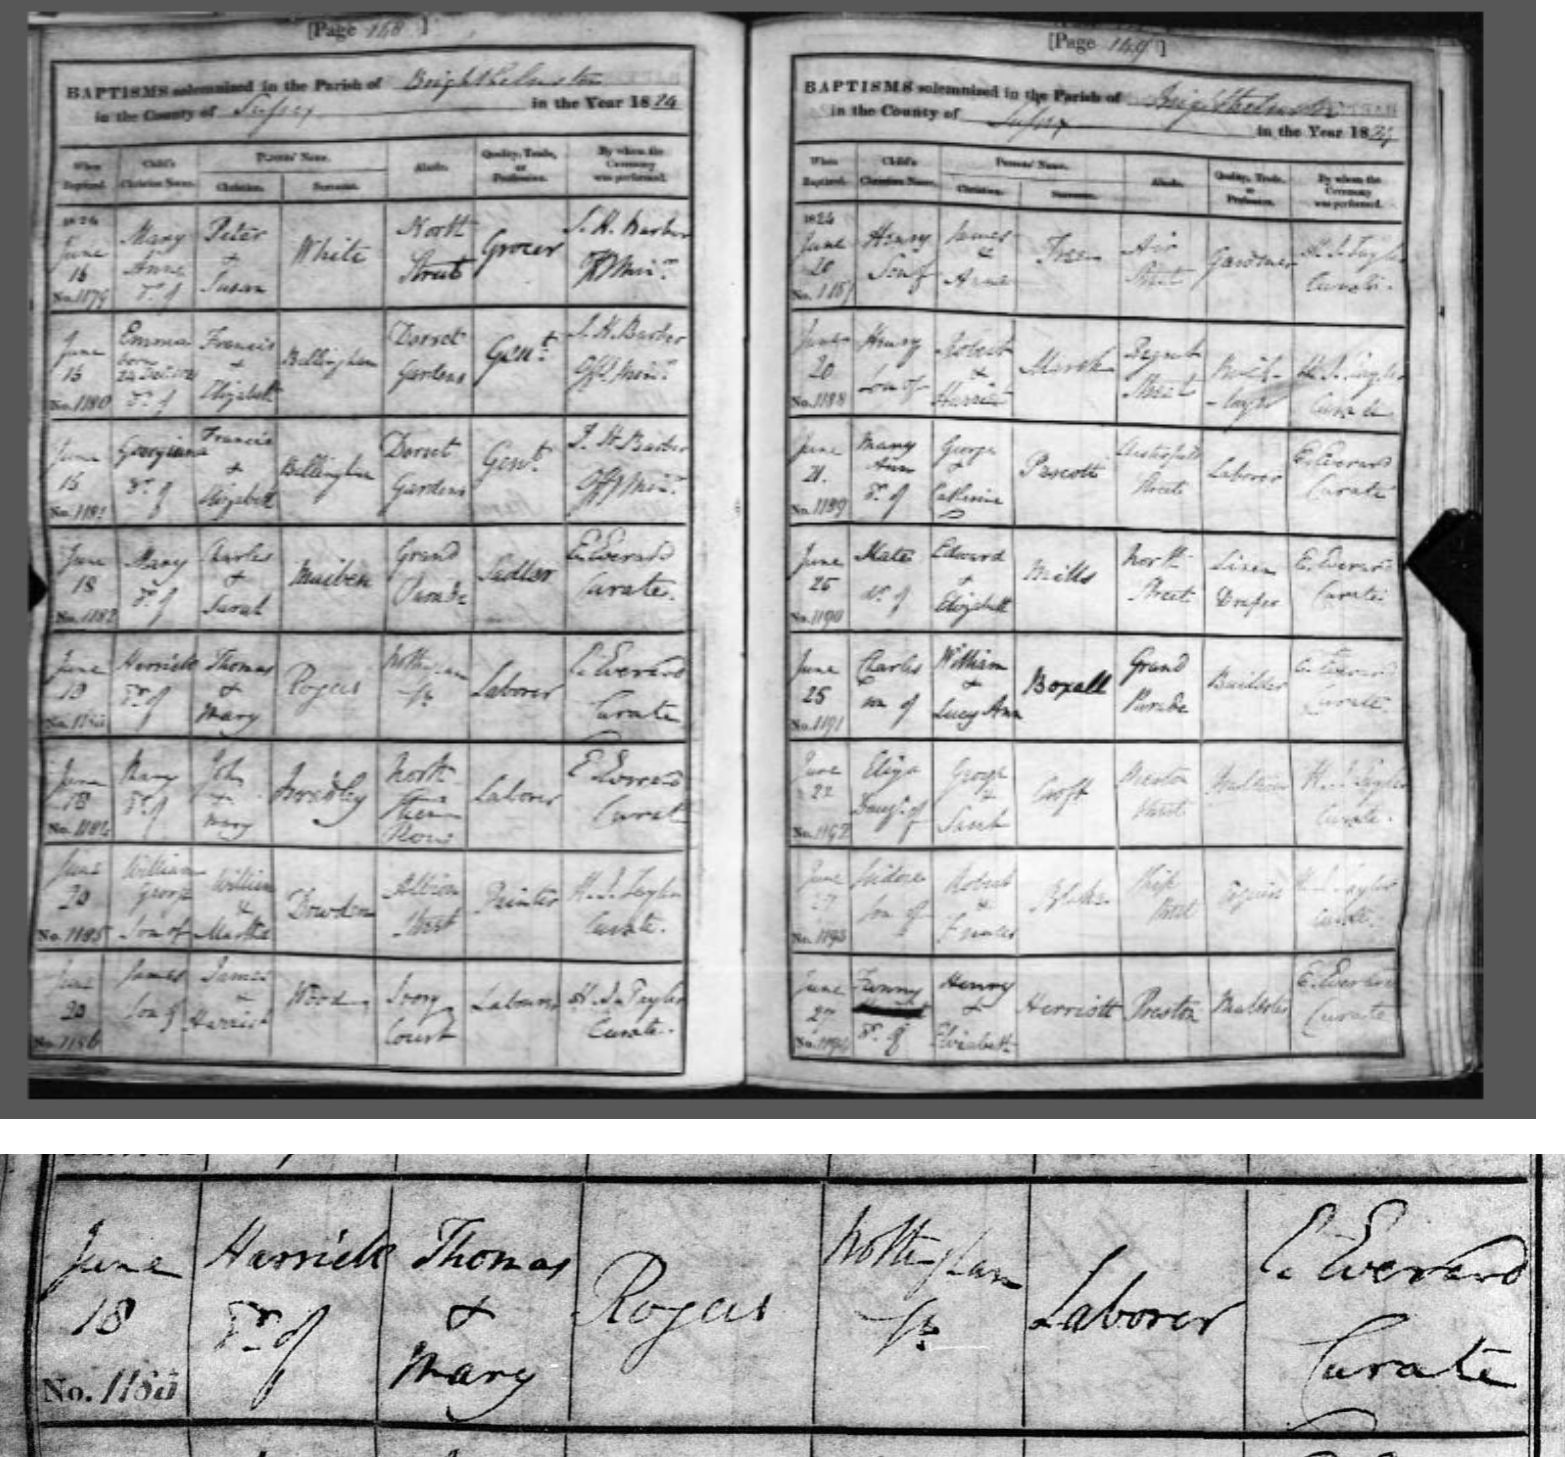 [Page 148 ]
BAPTISMS solemnized in the Parish of Brighthelmston
in the County of Sussex in the Year 1824
When Baptized. Child's Christian Name. Parents' Name. Christian. Surname. Abode. Quality, Trade, or Profession. By whom the Ceremony was performed.
1824
June 16 No. 1179 Mary Anne Dr. of Peter & Susan White North Street Grocer S. H. Barber Offg Minr.
June 16 No. 1180 Emma born Dr. of Francis & Elizabeth Bellingham Dorset Gardens Gent. S. H. Barber Offg Minr.
June 16 No. 1181 Georgiana Dr. of Francis & Elizabeth Bellingham Dorset Gardens Gent. S. H. Barber Offg Minr.
June 18 No. 1182 Mary Dr. of Charles & Sarah Maiben Grand Parade Sadler E. Everard Curate.
June 18 No. 1183 Harriett Dr. of Thomas & Mary Rogers Nottingham St. Laborer E. Everard Curate
June 18 No. 1184 Mary Dr. of John & Mary Bradley North Row Laborer E. Everard Curate
June 20 No. 1185 William George Son of William & Martha Dowden Albion Street Painter H. J. Taylor Curate.
June 20 No. 1186 James Son of James & Harriet Wood Ivory Court Labourer H. J. Taylor Curate.
[Page 149 ]
BAPTISMS solemnized in the Parish of Brighthelmston
in the County of Sussex in the Year 1824
When Baptized. Child's Christian Name. Parents' Name. Christian. Surname. Abode. Quality, Trade, or Profession. By whom the Ceremony was performed.
1824
June 20 No. 1187 Henry Son of James & Anne Air Street Gardner H. J. Taylor Curate.
June 20 No. 1188 Henry Son of Robert & Harriet Marsh Regent Street H. J. Taylor Curate
June 21. No. 1189 Mary Ann Dr. of George & Catherine Pescott Street Laborer E. Everard Curate
June 25 No. 1190 Dr. of Edward & Elizabeth Mills North Street Linen Draper E. Everard Curate
June 25 No. 1191 Charles son of William & Lucy Ann Boxall Grand Parade Builder E. Everard Curate
June No. 1192 Eliza Daugr. of George & Sarah Croft Preston Street H. J. Taylor Curate.
June 27 No. 1193 Son of Robert & Frances Blake Ship Street H. J. Taylor Curate.
June 27 No. 1194 Fanny Dr. of Henry & Elizabeth Herriott Preston Maltster E. Everard Curate
June Harriett Thomas Rogers Nottingham Laborer E. Everard
18 Dr. of & St. Curate
No. 1183 Mary